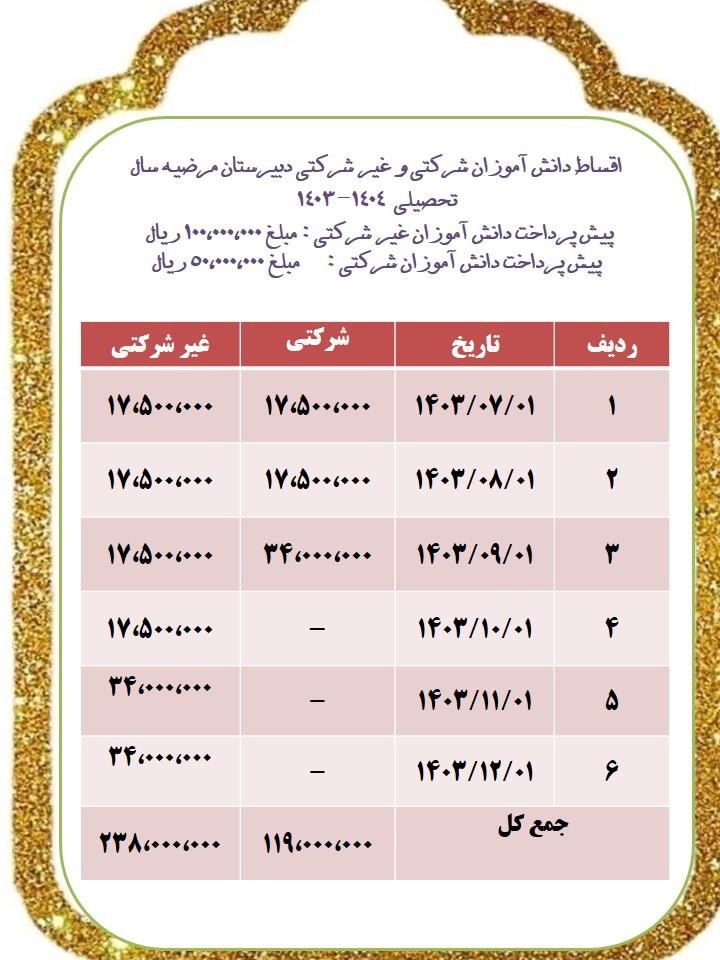 اقساط دانش آموزان شرکتی و غیر شرکتی دبیرستان مرضیه سال
تحصیلی ۱۴۰۴-۱۴۰۳
پیش پرداخت دانش آموزان غیر شرکتی : مبلغ ۱۰۰،۰۰۰،۰۰۰ ریال
پیش پرداخت دانش آموزان شرکتی : مبلغ ۵۰،۰۰۰،۰۰۰ ریال
ردیف تاریخ شرکتی غیر شرکتی
۱ ۱۴۰۳/۰۷/۰۱ ۱۷،۵۰۰،۰۰۰ ۱۷،۵۰۰،۰۰۰
۲ ۱۴۰۳/۰۸/۰۱ ۱۷،۵۰۰،۰۰۰ ۱۷،۵۰۰،۰۰۰
۳ ۱۴۰۳/۰۹/۰۱ ۳۴،۰۰۰،۰۰۰ ۱۷،۵۰۰،۰۰۰
۴ ۱۴۰۳/۱۰/۰۱ - ۱۷،۵۰۰،۰۰۰
۵ ۱۴۰۳/۱۱/۰۱ - ۳۴،۰۰۰،۰۰۰
۶ ۱۴۰۳/۱۲/۰۱ - ۳۴،۰۰۰،۰۰۰
جمع کل ۱۱۹،۰۰۰،۰۰۰ ۲۳۸،۰۰۰،۰۰۰